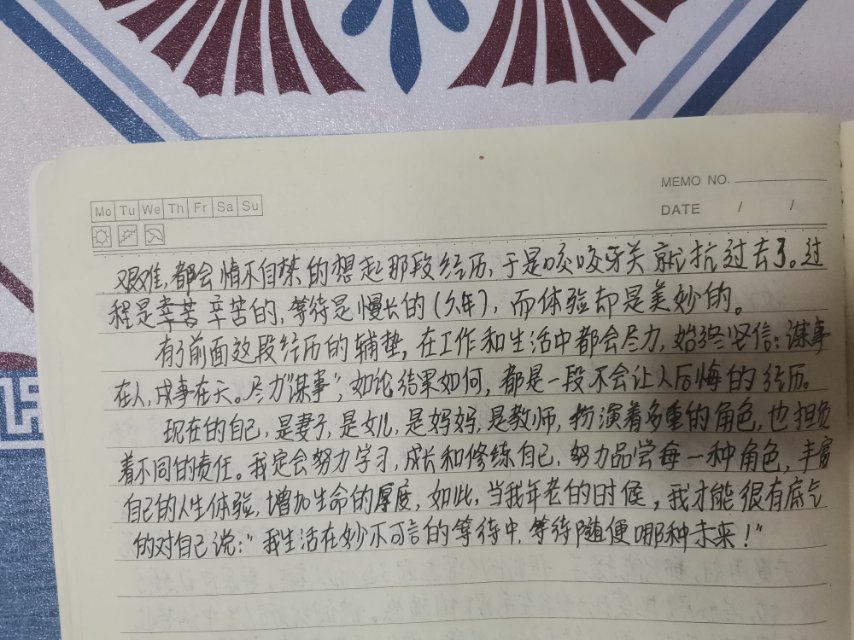 MEMO NO.
Mo Tu We Th Fr Sa Su
DATE / /
艰难，都会情不自禁的想起那段经历，于是咬咬牙关就抗过去了。过
程是辛苦的，等待是慢长的（6年），而体验却是美妙的。
有了前面这段经历的辅垫，在工作和生活中都会尽力，始终坚信：谋事
在人，成事在天。尽力“谋事”，如论结果如何，都是一段不会让人后悔的经历。
现在的自己，是妻子，是女儿，是妈妈，是教师，扮演着多重的角色，也担负
着不同的责任。我定会努力学习，成长和修练自己，努力品尝每一种角色，丰富
自己的人生体验，增加生命的厚度，如此，当我年老的时候，我才能很有底气
的对自己说：“我生活在妙不可言的等待中，等待随便哪种未来！”